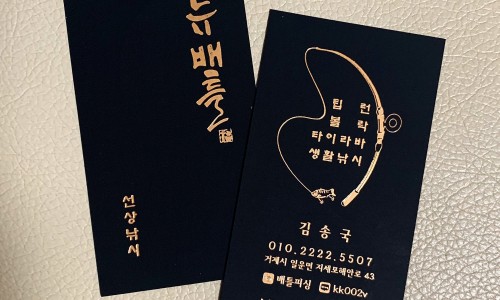 뉴배틀
선상낚시
팁런
볼락
타이라바
생활낚시
김송국
010.2222.5507
거제시 일운면 지세포해안로 43
배틀피싱 kk002v